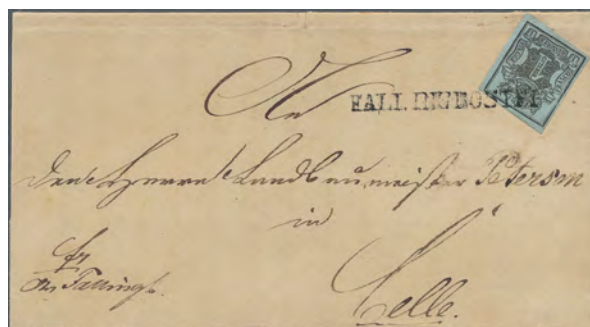 An
FALLINGBOSTEL
den Herrn Landbaumeister Petersen
in
fr
Celle.